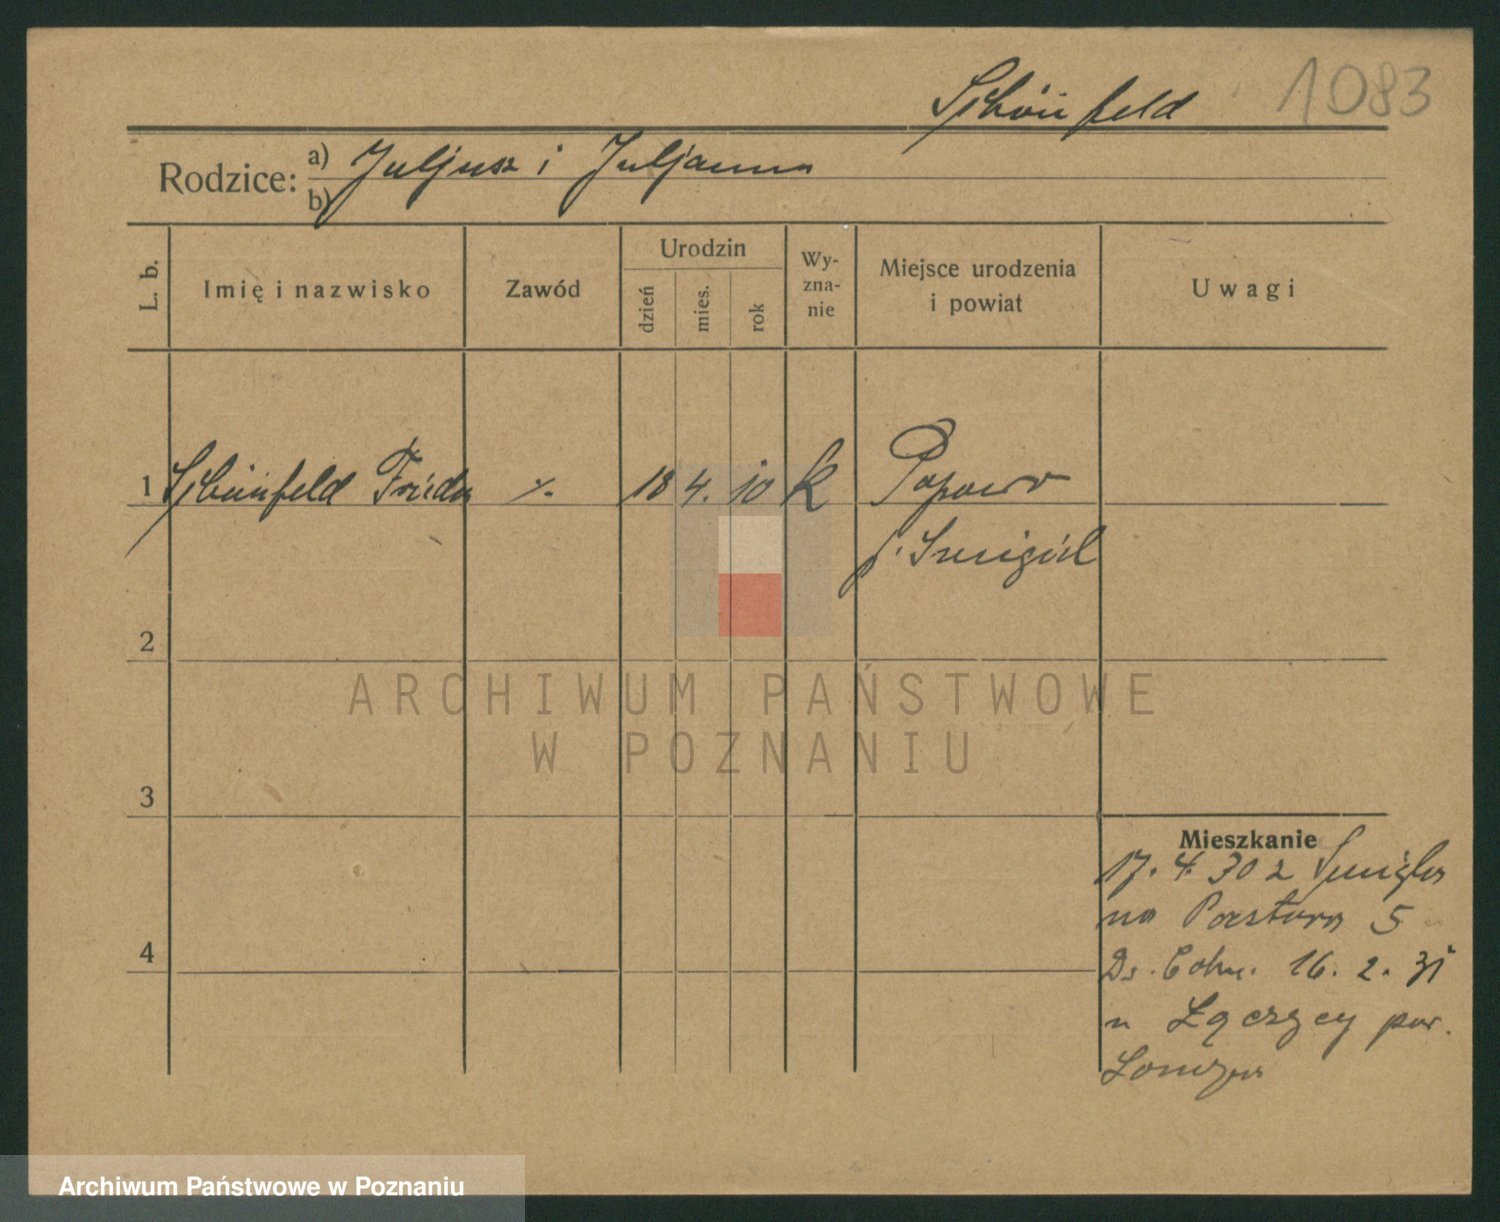 Schönfeld 1083
Rodzice: a) Juljusz i Juljanna
b)
L. b.
Imię i nazwisko
Zawód
Urodzin
dzień
mies.
rok
Wy-
zna-
nie
Miejsce urodzenia
i powiat
Uwagi
1 Schönfeld Frieda ·/. 18 4. 10 k Popowo
p. Śmigiel
2
ARCHIWUM PAŃSTWOWE
W POZNANIU
3
Mieszkanie
17. 4. 30 z Śmigla
na Pasteura 5
16. 2. 31
pow.
4
Archiwum Państwowe w Poznaniu